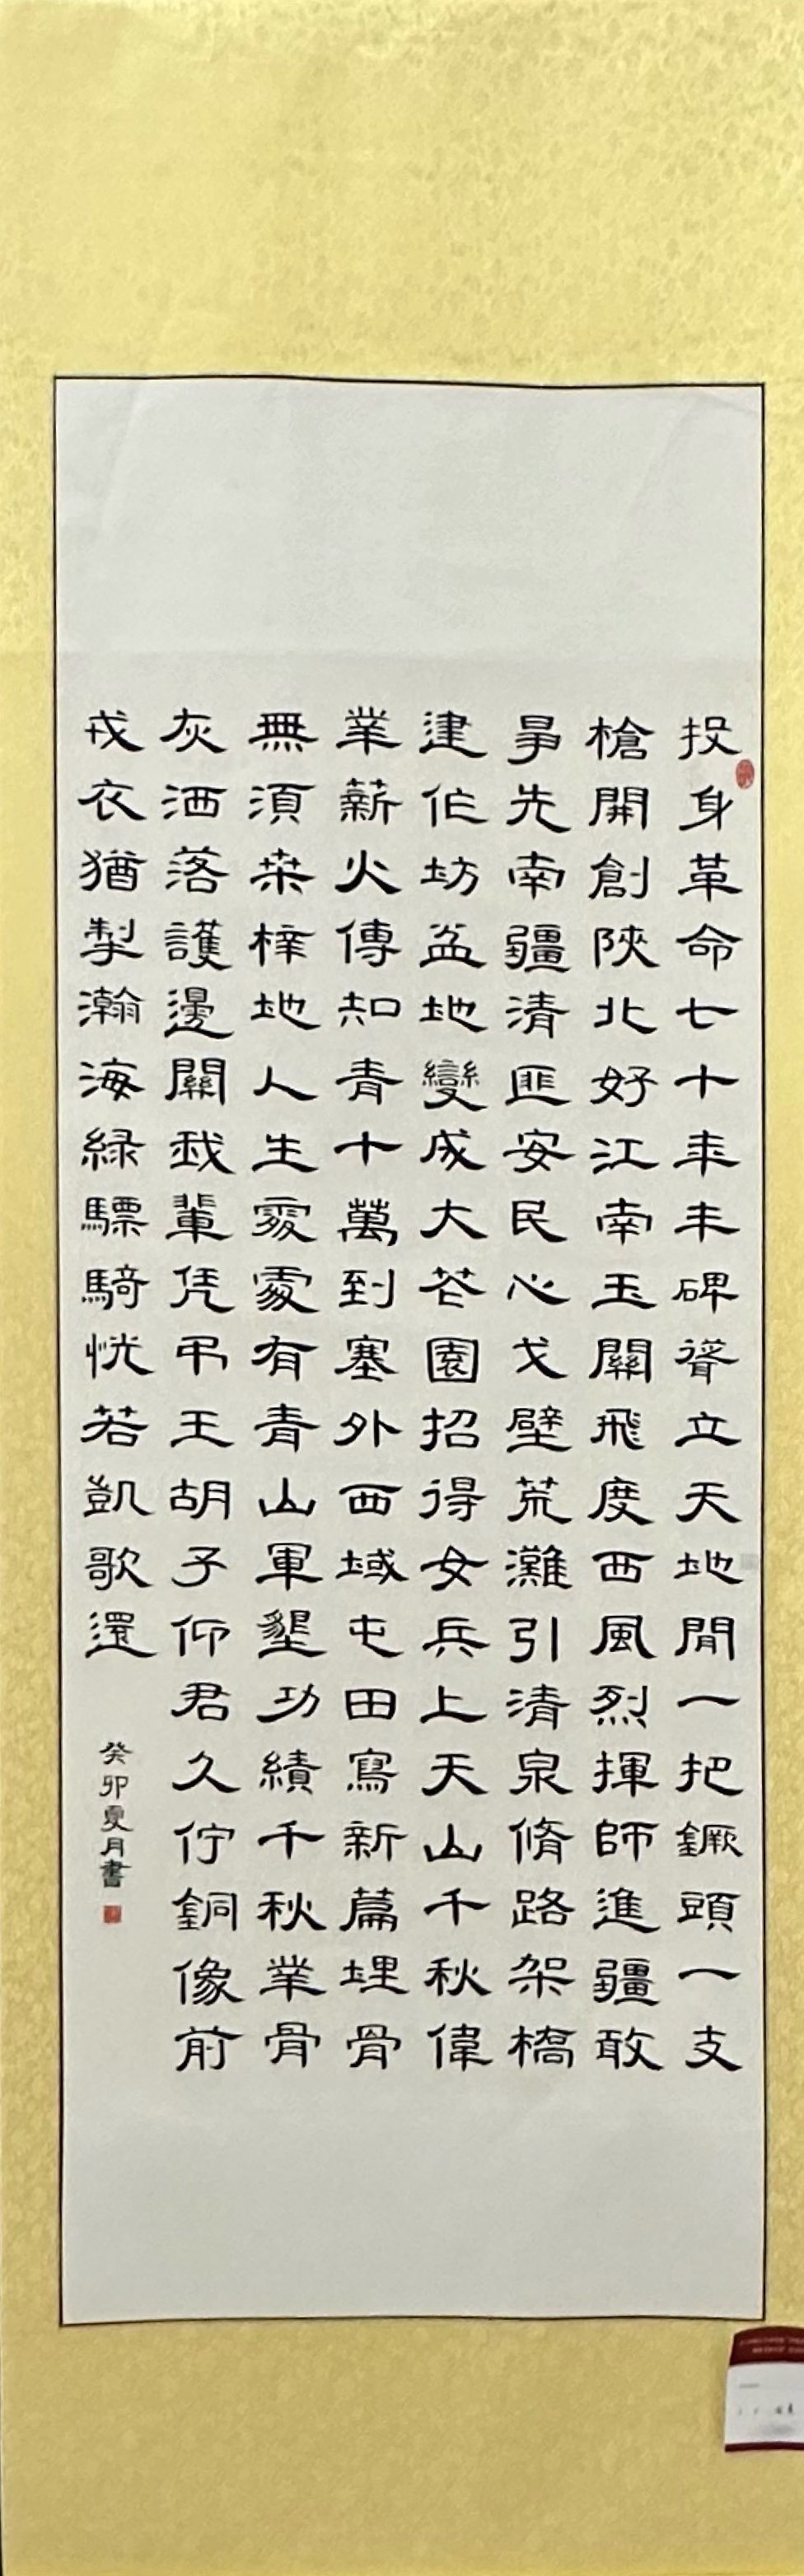 投身革命七十年丰碑聳立天地間一把鐝頭一支
槍開創陝北好江南玉關飛度西風烈揮師進疆敢
爭先南疆清匪安民心戈壁荒灘引清泉脩路架橋
建作坊盆地變成大花園招得女兵上天山千秋偉
業薪火傳知青十萬到塞外西域屯田寫新篇埋骨
無須桑梓地人生處處有青山軍墾功績千秋業骨
灰洒落護邊關我輩凭弔王胡子仰君久佇銅像前
戎衣猶犁瀚海綠驃騎恍若凱歌還
癸卯夏月書